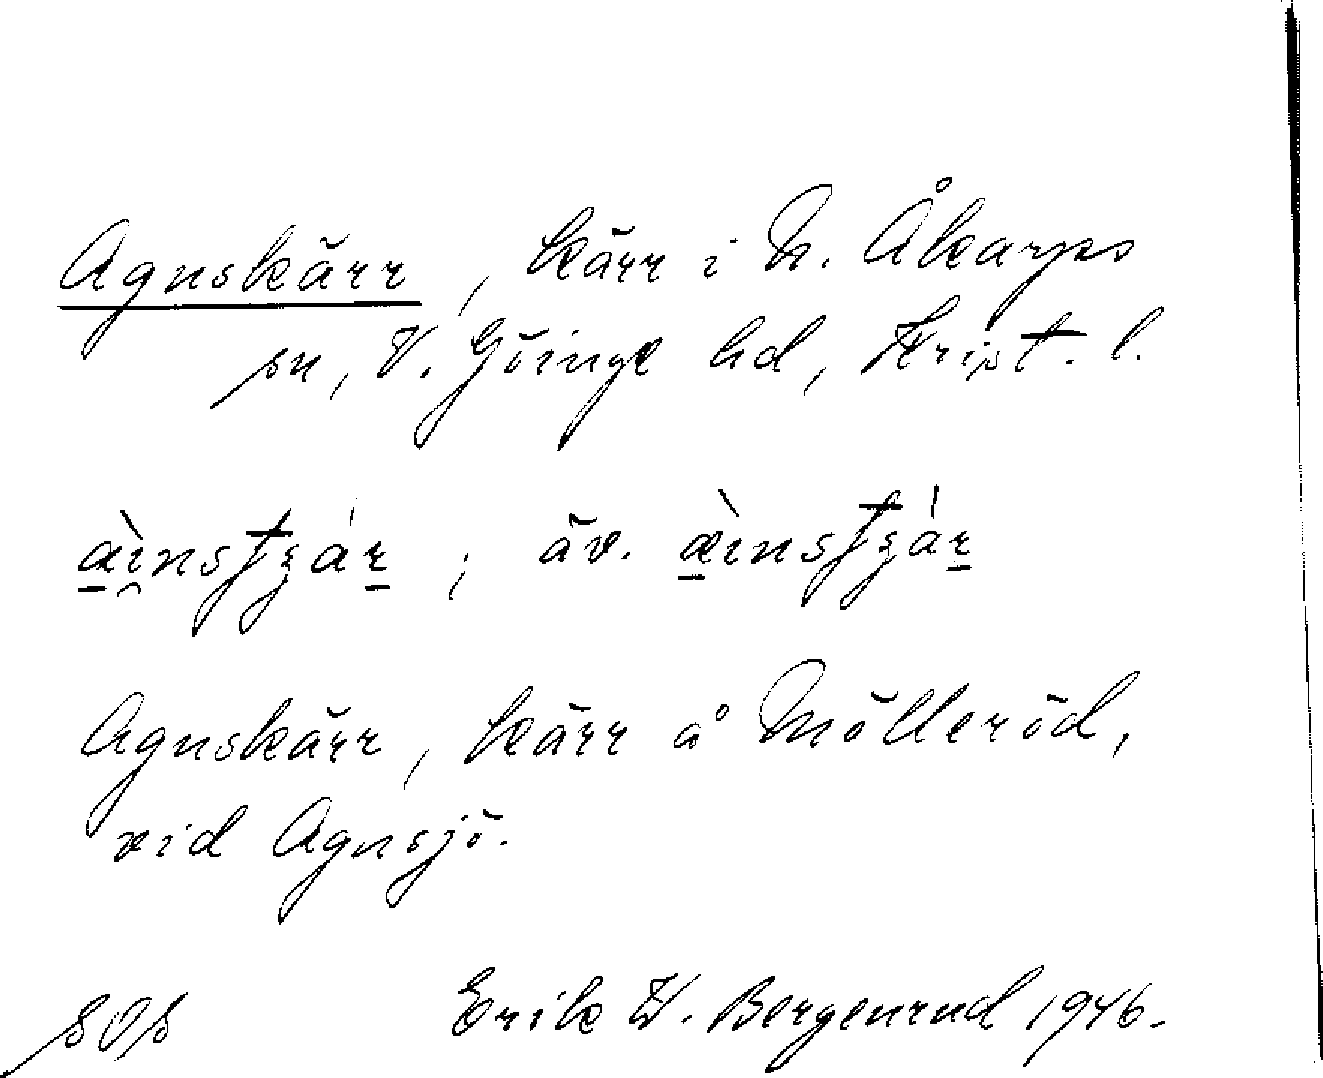 Agnskärr, kärr i N. Åkarps
sn, V. Göinge hd, Krist. l.
àinstʒár ; äv. æ̀instʒár
Agnskärr, kärr å Mölleröd,
vid Agnsjö.
Erik W. Bergenrud 1946.